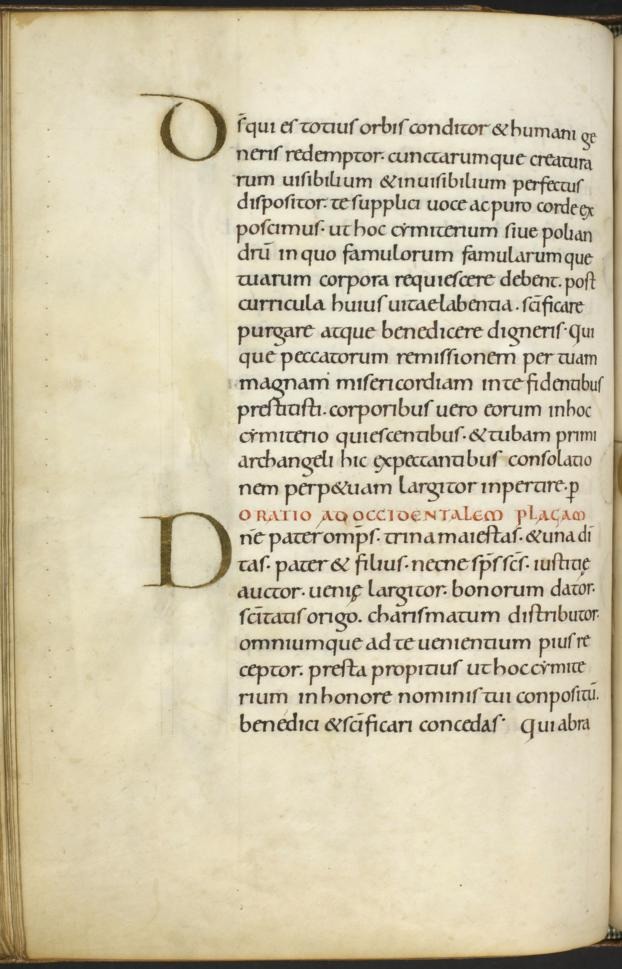 Ds̄ qui es totius orbis conditor & humani ge
neris redemptor· cunctarumque creatura
rum uisibilium & inuisibilium perfectus
dispositor· te supplici uoce ac puro corde ex
poscimus· ut hoc cymiterium siue polian
drū in quo famulorum famularumque
tuarum corpora requiescere debent· post
curricula huius uitae labentia· sc̄ificare
purgare atque benedicere digneris· qui
que peccatorum remissionem per tuam
magnam misericordiam in te fidentibus
prestitisti· corporibus uero eorum in hoc
cymiterio quiescentibus· & tubam primi
archangeli hic expectantibus consolatio
nem perp&uam largitor inpertire· p
ORATIO AD OCCIDENTALEM PLAGAM
Dn̄e pater omp̄s· trina maiestas· & una di
tas· pater & filius· necne sp̄s sc̄s· iustitię
auctor· uenię largitor· bonorum dator·
sc̄itatis origo· charismatum distributor·
omniumque ad te uenientium pius re
ceptor· presta propitius ut hoc cymite
rium in honore nominis tui conpositū·
benedici & sc̄ificari concedas· Qui abra